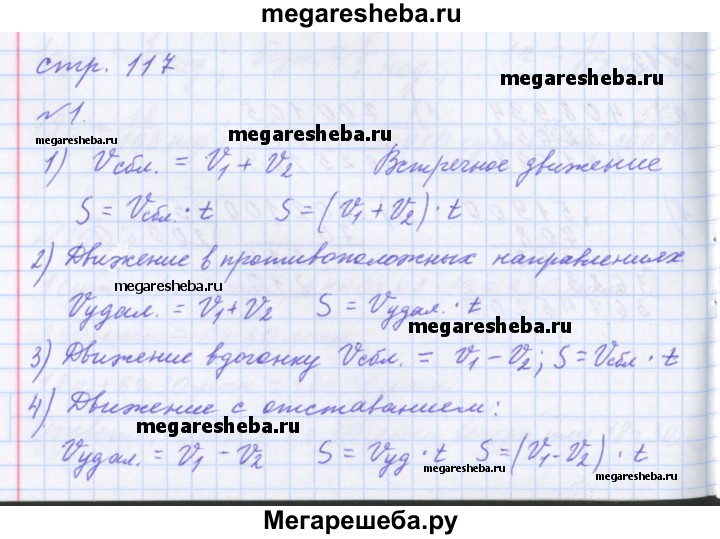 megaresheba.ru
стр. 117
megaresheba.ru
№1.
megaresheba.ru
megaresheba.ru
1) Vсбл. = V₁ + V₂ Встречное движение
S = Vсбл. · t S = (V₁ + V₂) · t
2) Движение в противоположных направлениях
megaresheba.ru
Vудал. = V₁ + V₂ S = Vудал. · t
megaresheba.ru
3) Движение вдогонку Vсбл. = V₁ - V₂; S = Vсбл · t
4) Движение с отставанием:
megaresheba.ru
Vудал. = V₁ - V₂ S = Vуд · t S = (V₁ - V₂) · t
megaresheba.ru
megaresheba.ru
Мегарешеба.ру